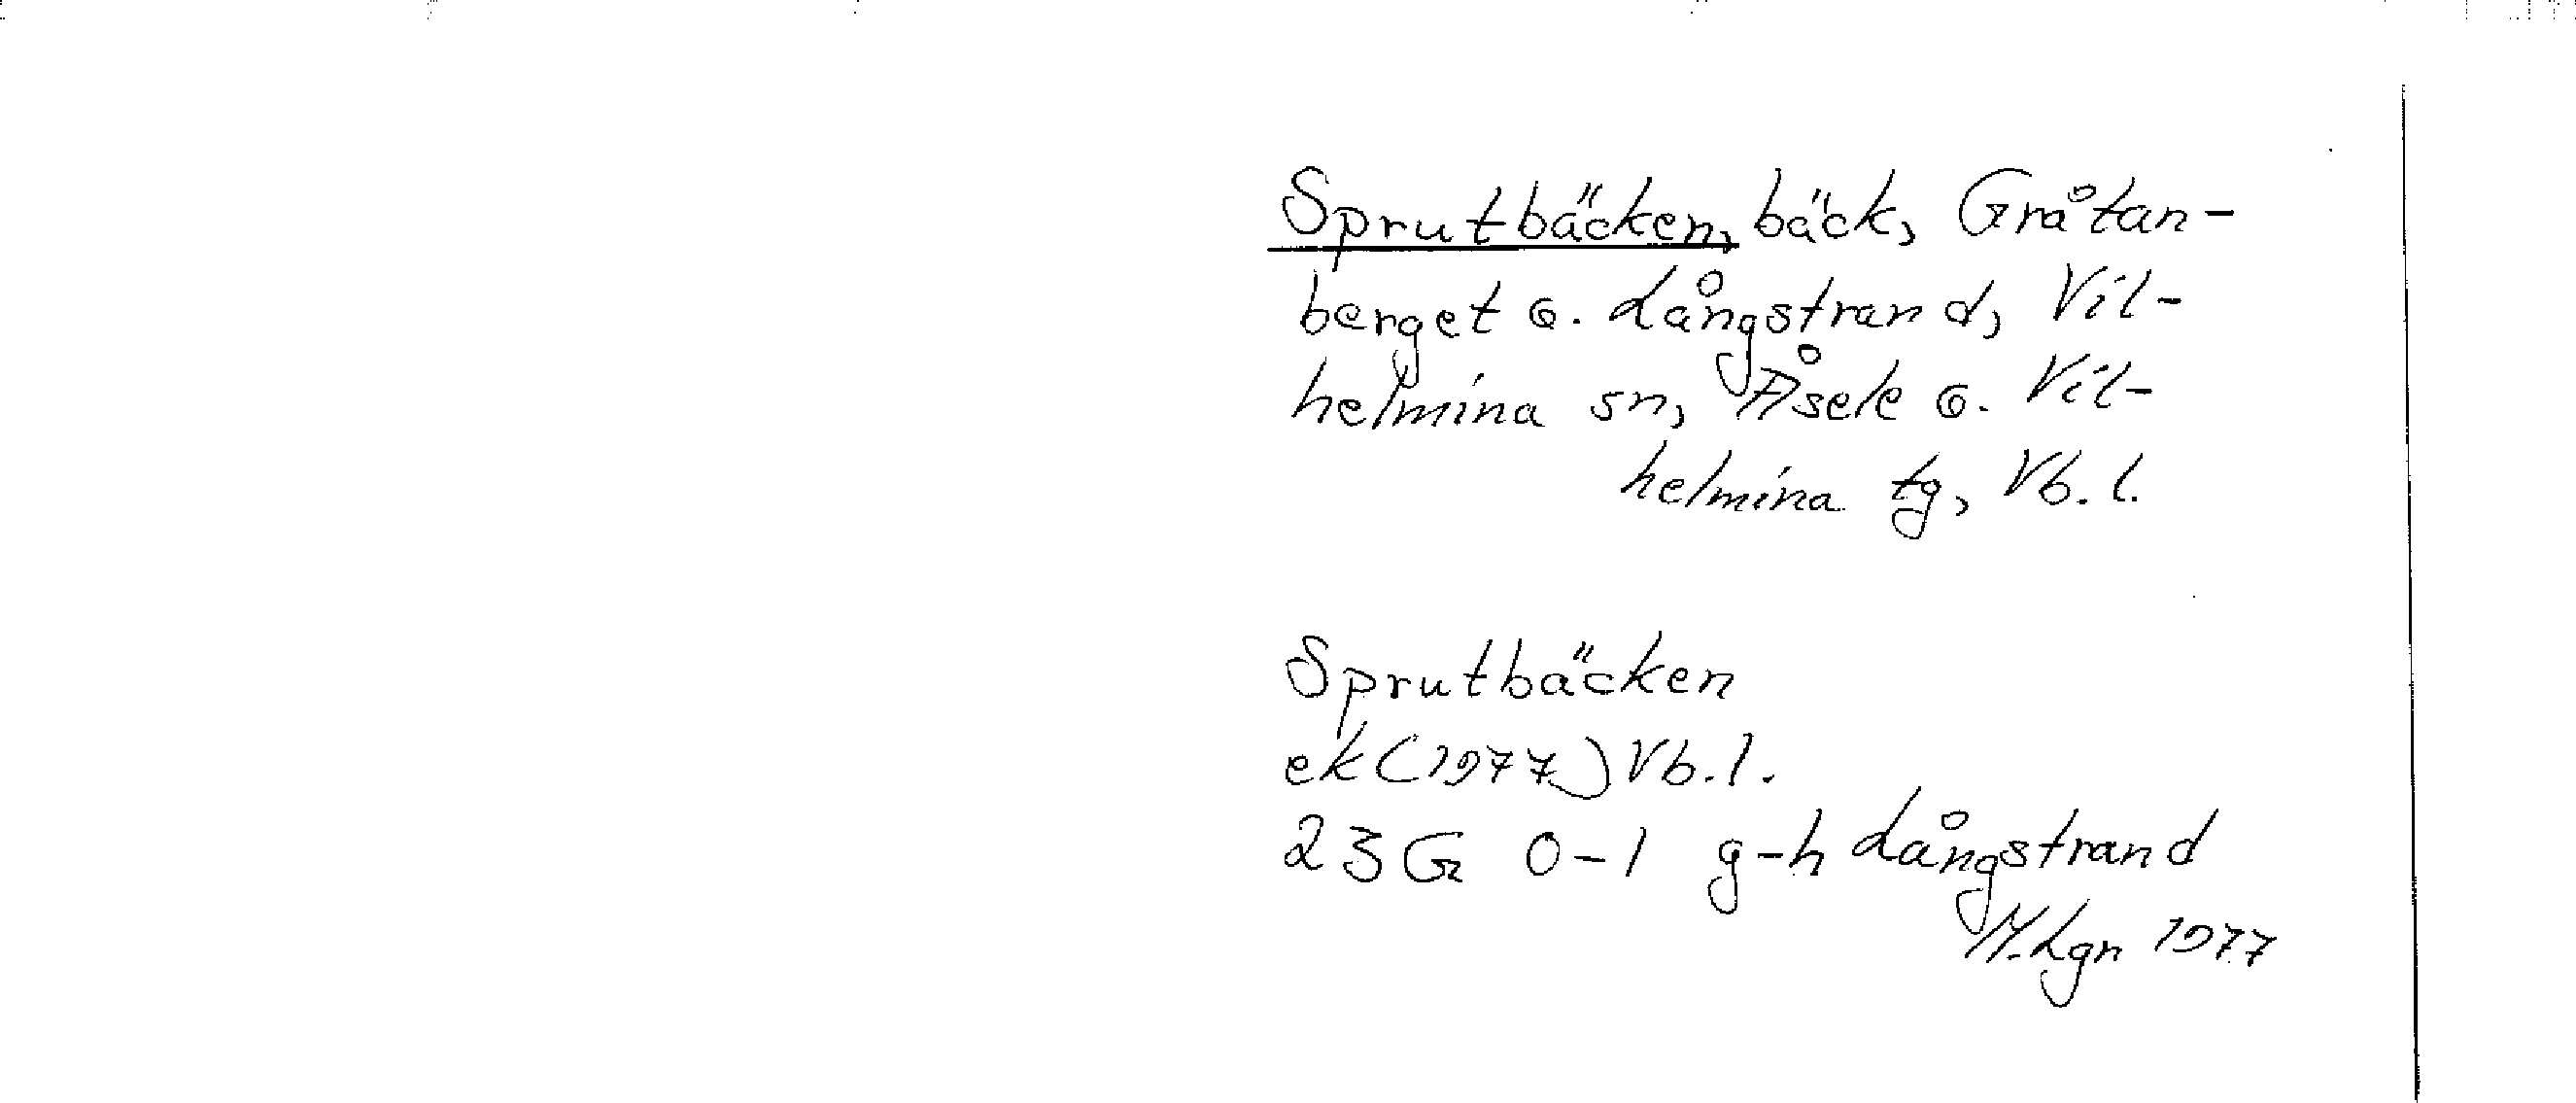 Sprutbäcken, bäck, Gråtan-
berget o. Långstrand, Vil-
helmina sn, Åsele o. Vil-
helmina tg, Vb. l.
Sprutbäcken
ek (1977) Vb. l.
23G 0-1 g-h Långstrand
M.Lgn 1977